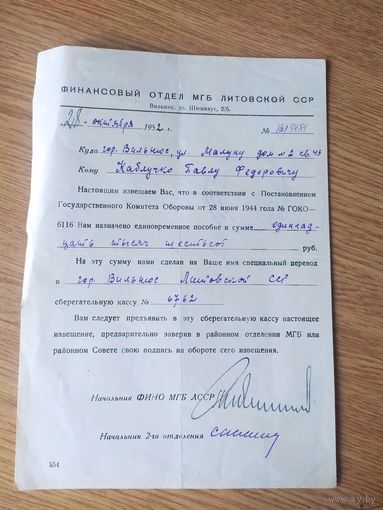 ФИНАНСОВЫЙ ОТДЕЛ МГБ ЛИТОВСКОЙ ССР
Вильнюс, ул. 2/5.
28 - октября 1952 г. №
Куда гор. Вильнюс, ул. Малуну дом № 2 кв. 43
Кому Каблучко Павлу Федоровичу
Настоящим извещаем Вас, что в соответствии с Постановлением
Государственного Комитета Обороны от 28 июня 1944 года № ГОКО—
6116 Вам назначено единовременное пособие в сумме одиннад
цать тысяч шестьсот руб.
На эту сумму нами сделан на Ваше имя специальный перевод
в гор. Вильнюс Литовской ССР
сберегательную кассу № 6762
Вам следует предъявить в эту сберегательную кассу настоящее
извещение, предварительно заверив в районном отделении МГБ или
районном Совете свою подпись на обороте сего извещения.
Начальник ФИНО МГБ ЛССР
Начальник 2-го отделения
554
www.ay.by